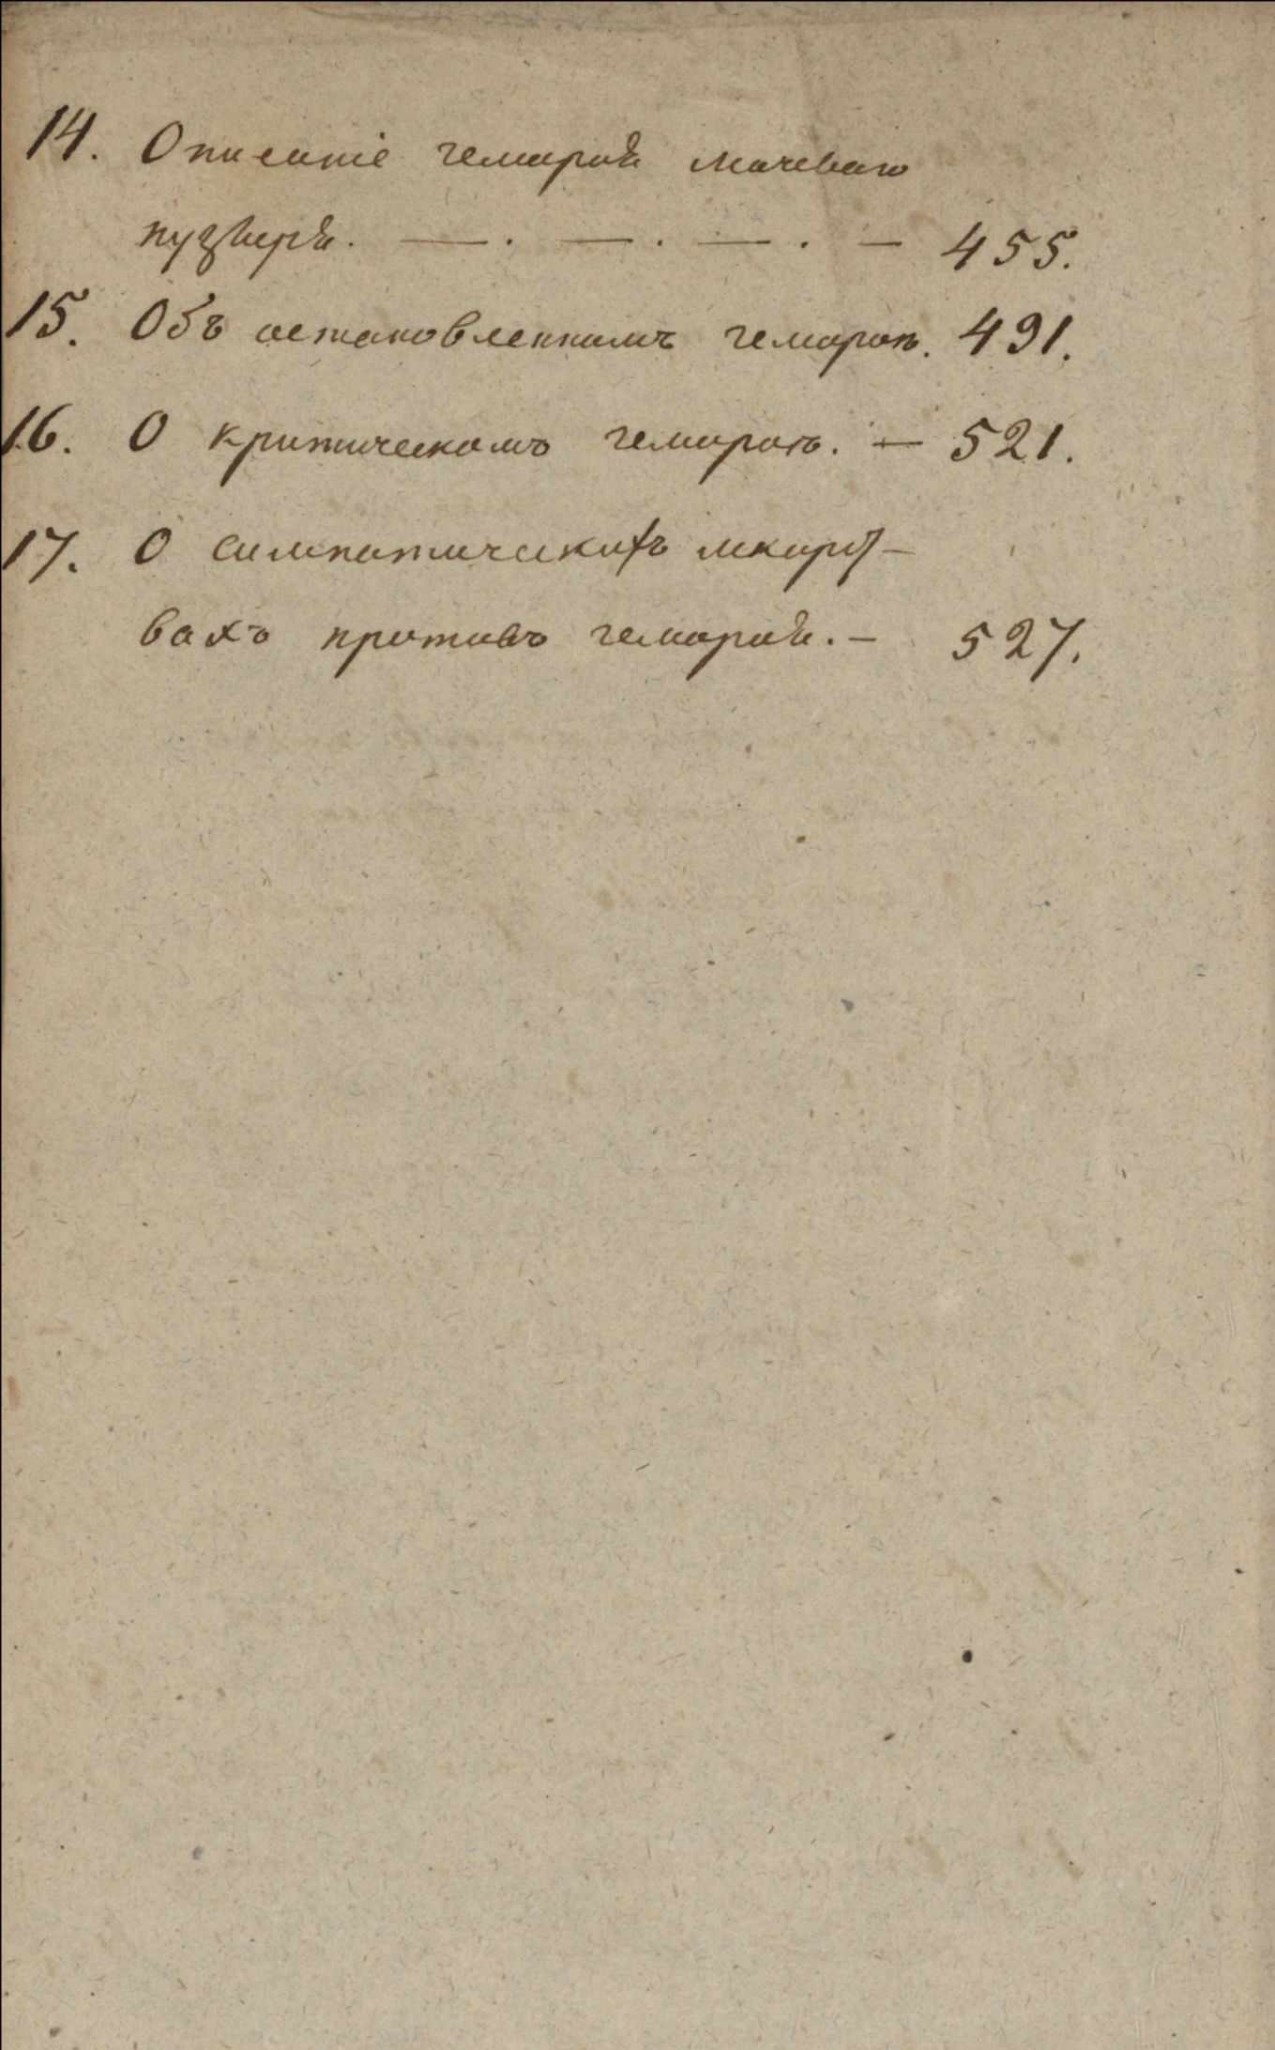 14. Описаніе гемороя мочеваго
пузыря. — . — . — . — 455.
15. Объ остановленномъ геморов. 491.
16. О критическомъ гемороѣ. — 521.
17. О симпатическихъ лкарст-
вахъ противъ гемороя. — 527.